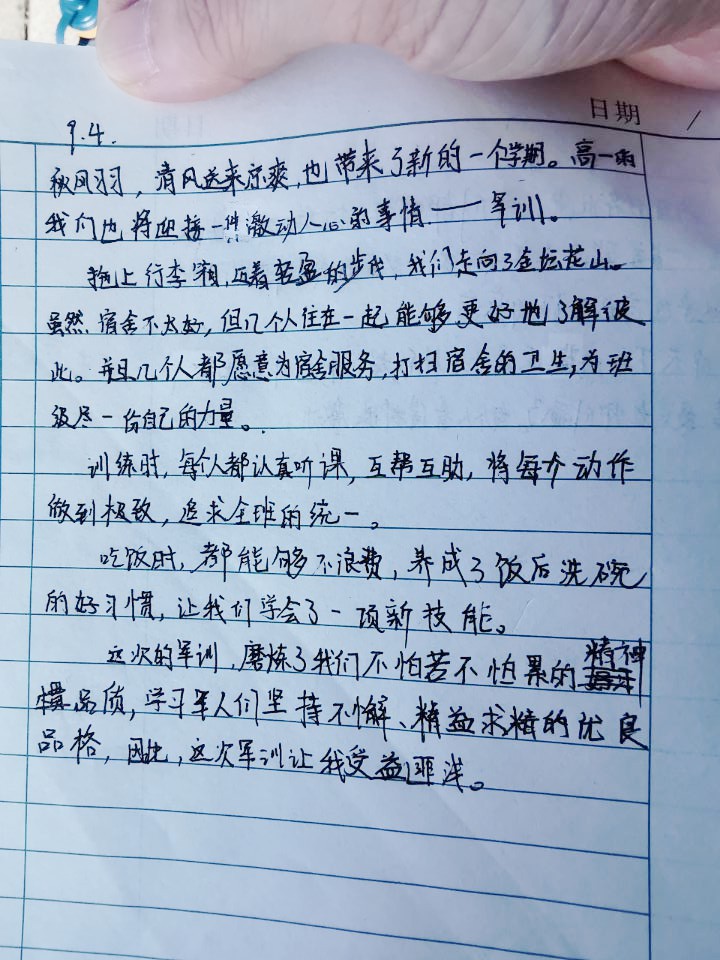 日期 /
9.4.
秋风羽，清风送来凉爽，也带来了新的一个学期。高一的
我们也将迎接一件激动人心的事情——军训。
拖上行李箱，迈着轻盈的步伐，我们走向了金坛茅山。
虽然宿舍不太好，但几个人住在一起能够更好地了解彼
此。并且几个人都愿意为宿舍服务，打扫宿舍的卫生，为班
级尽一份自己的力量。
训练时，每个人都认真听课，互帮互助，将每个动作
做到极致，追求全班的统一。
吃饭时，都能够不浪费，养成了饭后洗碗
的好习惯，让我们学会了一项新技能。
这次的军训，磨炼了我们不怕苦不怕累的精神
品质，学习军人们坚持不懈、精益求精的优良
品格，因此，这次军训让我受益匪浅。